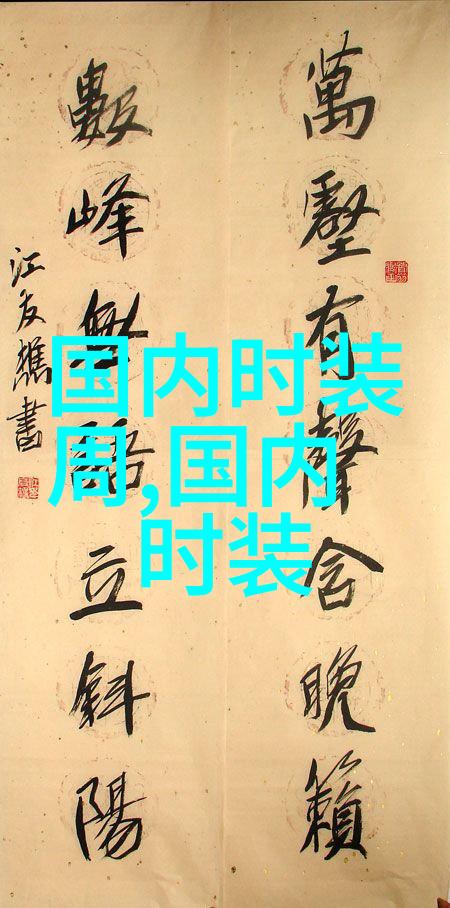 萬壑有聲含晚籟
數峰無語立斜陽
江友樵書
国内时装
周,国内
时装